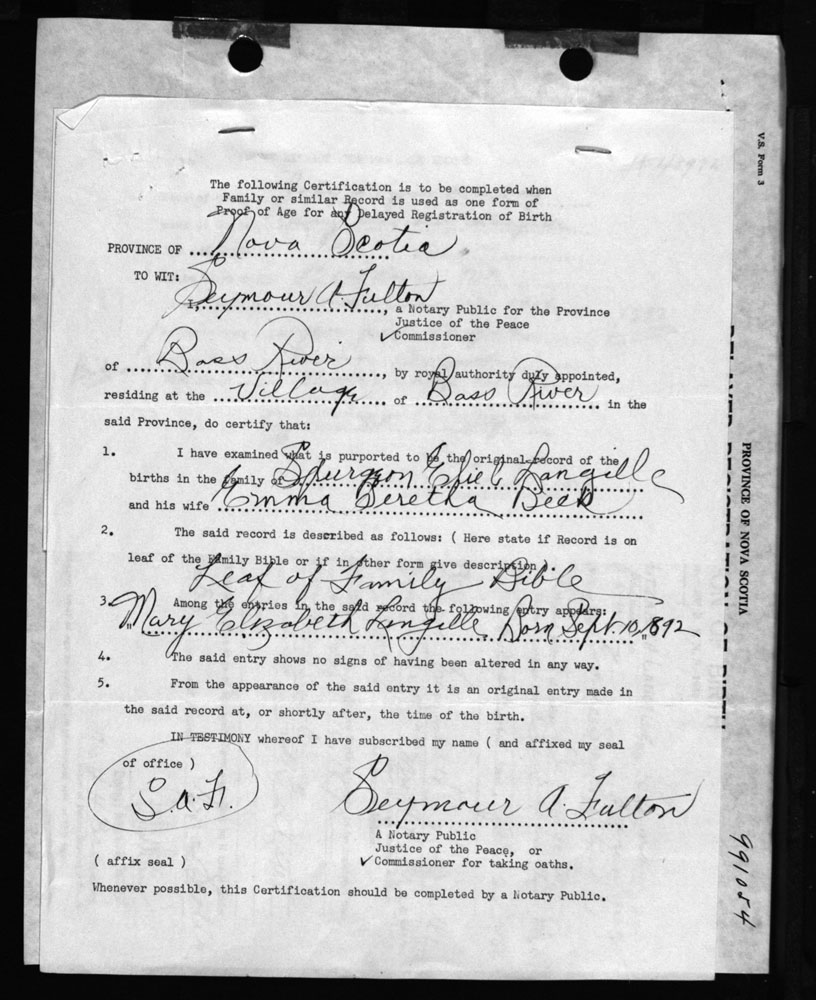 The following Certification is to be completed when
Family or similar Record is used as one form of
Proof of Age for any Delayed Registration of Birth
PROVINCE OF Nova Scotia
TO WIT:
I, Seymour A. Fulton, a Notary Public for the Province
Justice of the Peace
✓Commissioner
of Bass River, by royal authority duly appointed,
residing at the Village of Bass River in the
said Province, do certify that:
1. I have examined what is purported to be the original record of the
births in the family of Spurgeon Langille
and his wife Emma Beretha Beck
2. The said record is described as follows: ( Here state if Record is on
leaf of the Family Bible or if in other form give description)
Leaf of Family Bible
3. Among the entries in the said record the following entry appears:
"Mary Elizabeth Langille Born Sept. 10, 1892"
4. The said entry shows no signs of having been altered in any way.
5. From the appearance of the said entry it is an original entry made in
the said record at, or shortly after, the time of the birth.
IN TESTIMONY whereof I have subscribed my name ( and affixed my seal
of office )
S.A.F.
Seymour A. Fulton
A Notary Public
Justice of the Peace, or
( affix seal ) ✓Commissioner for taking oaths.
Whenever possible, this Certification should be completed by a Notary Public.
V.S. Form 3
PROVINCE OF NOVA SCOTIA
991054